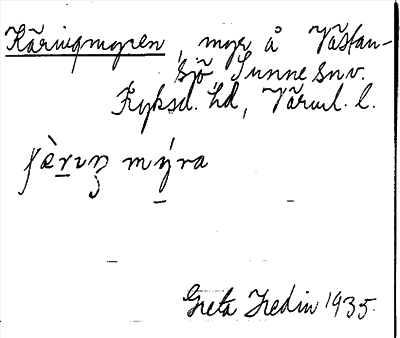 Käringmyren, myr å Västan-
sjö Sunne snv.
Fryksd. hd, Värml. l.
myra
Greta Hedin 1935.